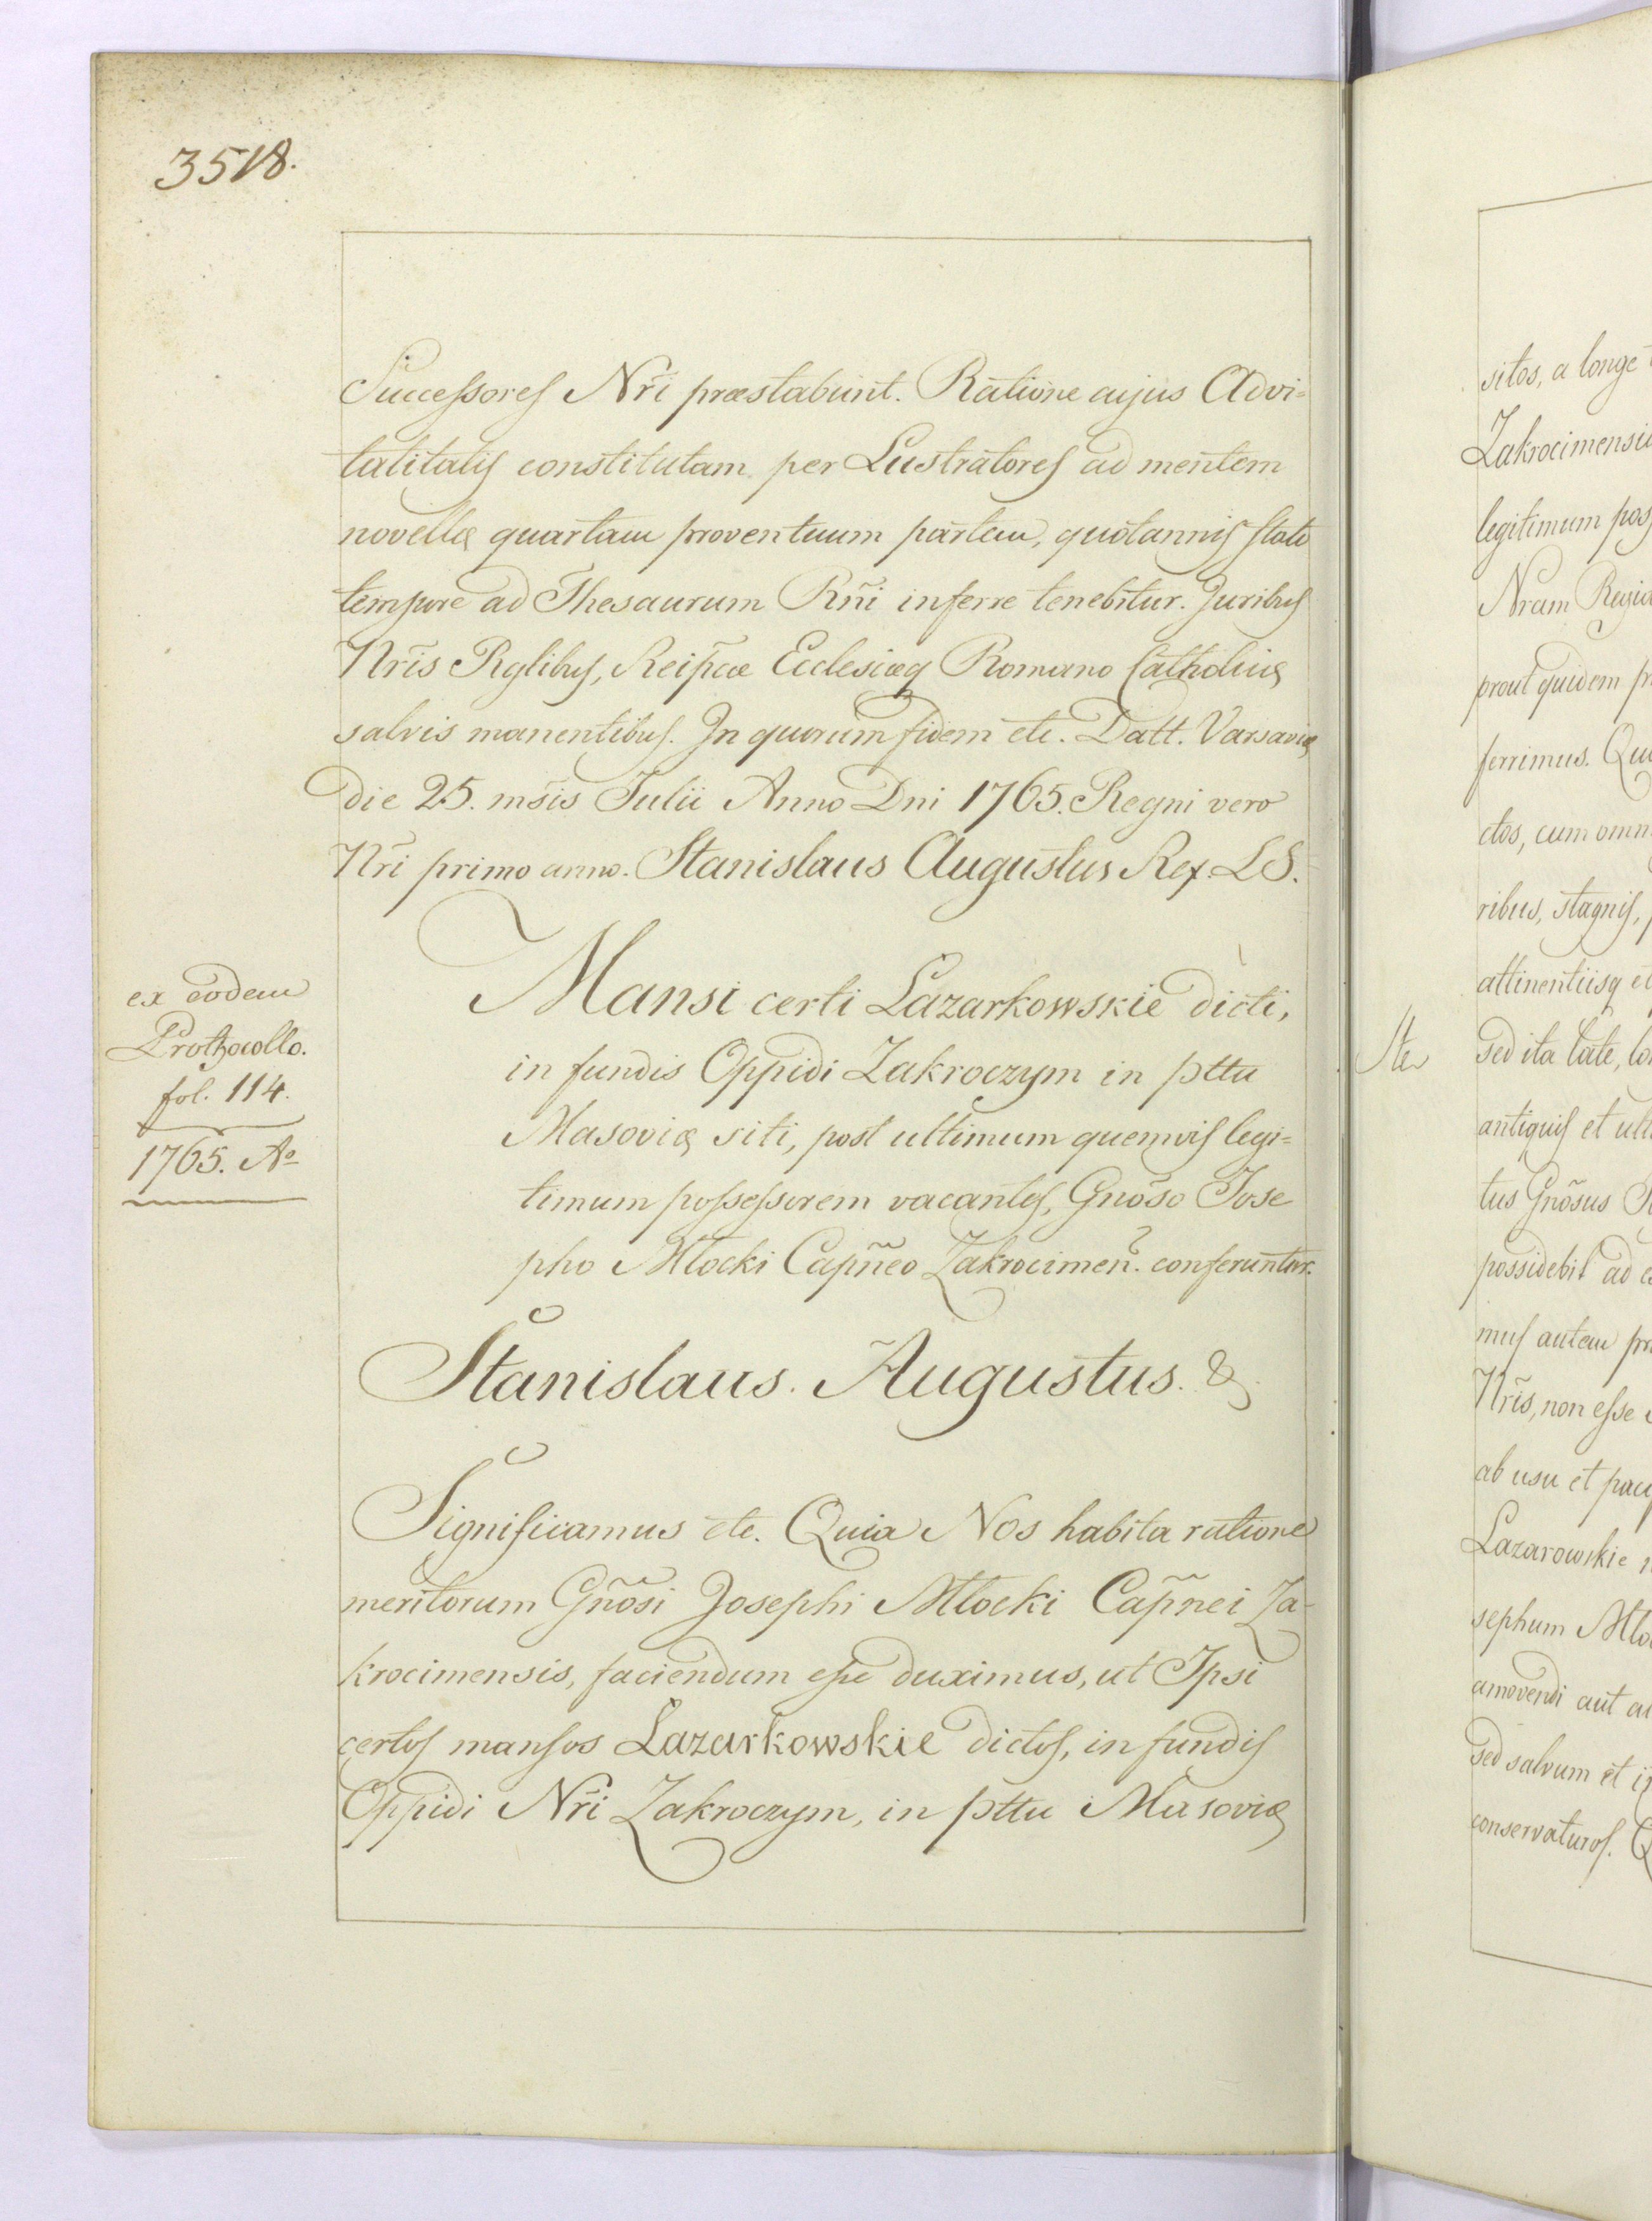 3518.
Successores Nri præstabunt. Ratione cujus Advi=
talitatis constitutam per Lustratores ad mentem
novellæ quartam proventuum partem, quotannis stato
tempore ad Thesaurum Rni inferre tenebitur. Juribus
Nris Rglibus, Reipcæ Ecclesiæq Romano Catholicæ
salvis manentibus. In quorum fidem etc. Datt. Varsaviæ
die 25. msis Julii Anno Dni 1765. Regni vero
Nri primo anno. Stanislaus Augustus Rex. LS.
ex eodem
Prothocollo.
fol. 114.
1765. Ao
Mansi certi Lazarkowskie dicti,
in fundis Oppidi Zakroczym in pttu
Masoviæ siti, post ultimum quemvis legi=
timum possessorem vacantes, Gnoso Jose
pho Młocki Capneo Zakrocimen. conferuntur.
Stanislaus. Augustus. &.
Significamus etc. Quia Nos habita ratione
meritorum Gnosi Josephi Młocki Capnei Za-
krocimensis, faciendum esse duximus, ut Ipsi
certos mansos Lazarkowskie dictos, in fundis
Oppidi Nri Zakroczym, in pttu Masoviæ
sitos, a longe
Zakrocimensi
legitimum pos
Nram Regia
prout quidem
ferrimus.
ctos, cum omn
ribus, stagnis,
attinentiisq et
sed ita late, lo
antiquis et ult
tus Gnosus
possidebit ad
mus autem
Nris, non esse
ab usu et paci
Lazarowskie
sephum Mło
amovendi aut
sed salvum et
conservaturos.